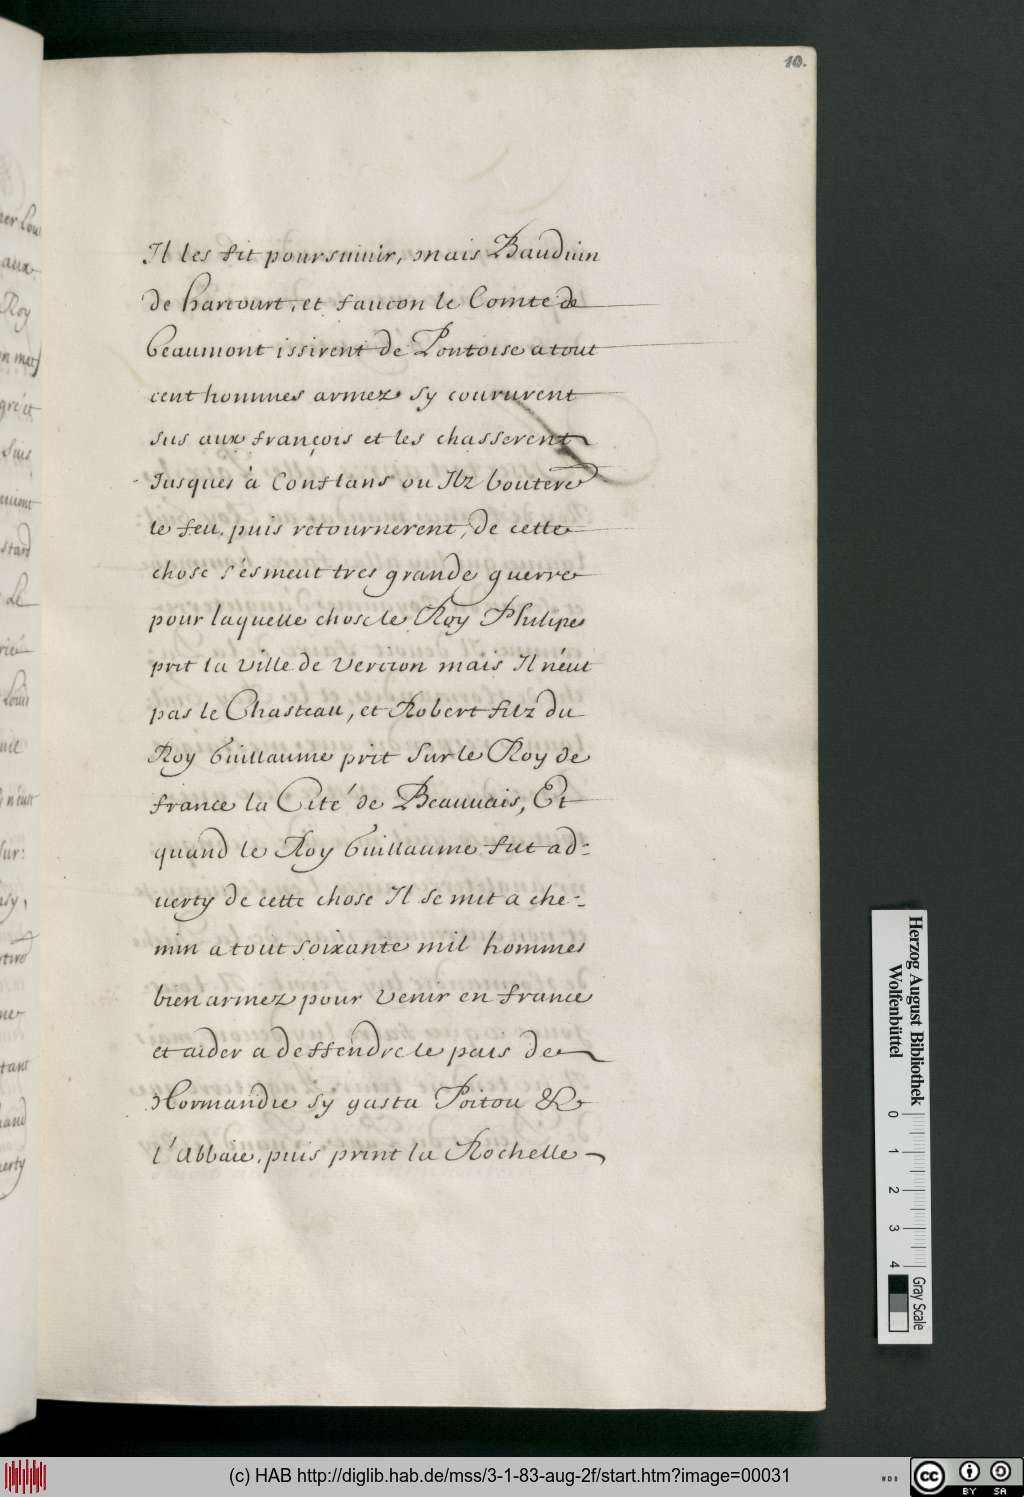 10.
Il les fit poursuiuir, mais Bauduin
de harcourt, et faucon le Comte de
beaumont issirent de Pontoise a tout
cent hommes armez sy coururent
sus aux françois et les chasserent
Jusques à Conflans ou Ilz boutere
le feu, puis retournerent, de cette
chose s'ésmeut tres grande guerre
pour laquelle chose le Roy Philipe
prit la ville de Vercion mais Il n'éut
pas le Chasteau, et Robert filz du
Roy Guillaume prit sur le Roy de
france la Cité de Beauuais, Et
quand le Roy Guillaume fut ad-
uerty de cette chose Il se mit a che-
min a tout soixante mil hommes
bien armez pour venir en france
et aider a deffendre le pais de
Normandie sy gasta Poitou &
l'Abbaie, puis print la Rochelle
Herzog August Bibliothek
Wolfenbüttel
0 1 2 3 4
Gray Scale
(c) HAB http://diglib.hab.de/mss/3-1-83-aug-2f/start.htm?image=00031
cc BY SA